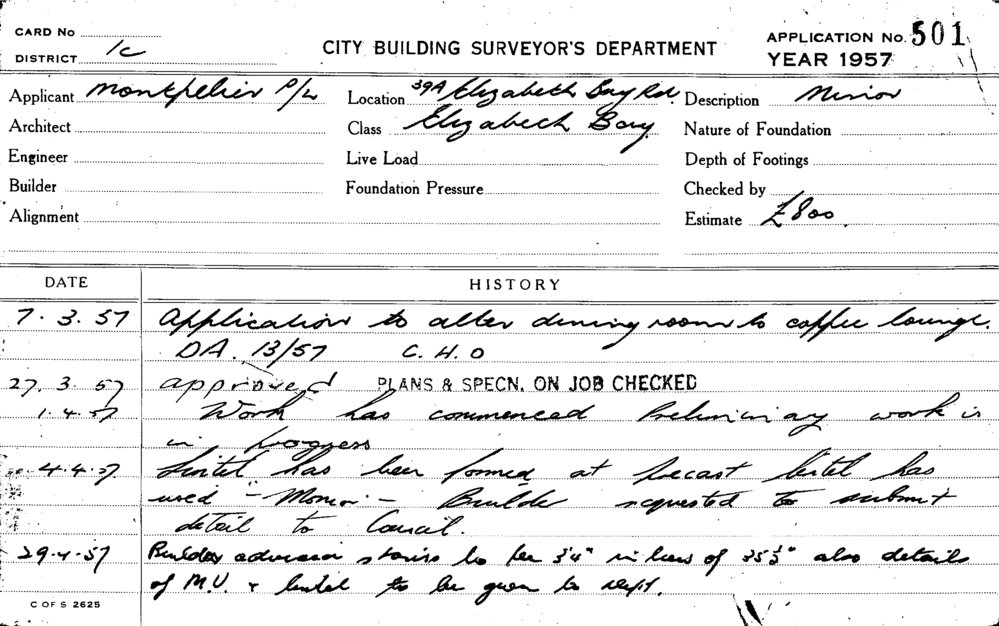 CARD No
DISTRICT 1c
CITY BUILDING SURVEYOR'S DEPARTMENT
APPLICATION No. 501
YEAR 1957
Applicant Montpelier P/L
Location 39A Elizabeth Bay Rd.
Description Minor
Architect
Class Elizabeth Bay
Nature of Foundation
Engineer
Live Load
Depth of Footings
Builder
Foundation Pressure
Checked by
Alignment
Estimate £800.
DATE HISTORY
7.3.57 Application to alter dining room to coffee lounge.
DA. 13/57 C.H.O
27.3.57 approved PLANS & SPECN. ON JOB CHECKED
1.4.57 Work has commenced Preliminary work is
in progress
4.4.57 Lintel has been formed at precast lintel has
used - - Builder requested to submit
detail to Council.
29.4.57 Builder stairs to be 3'4" in lieu of also details
of M.V. + lintel to be given to dept.
C OF S 2625